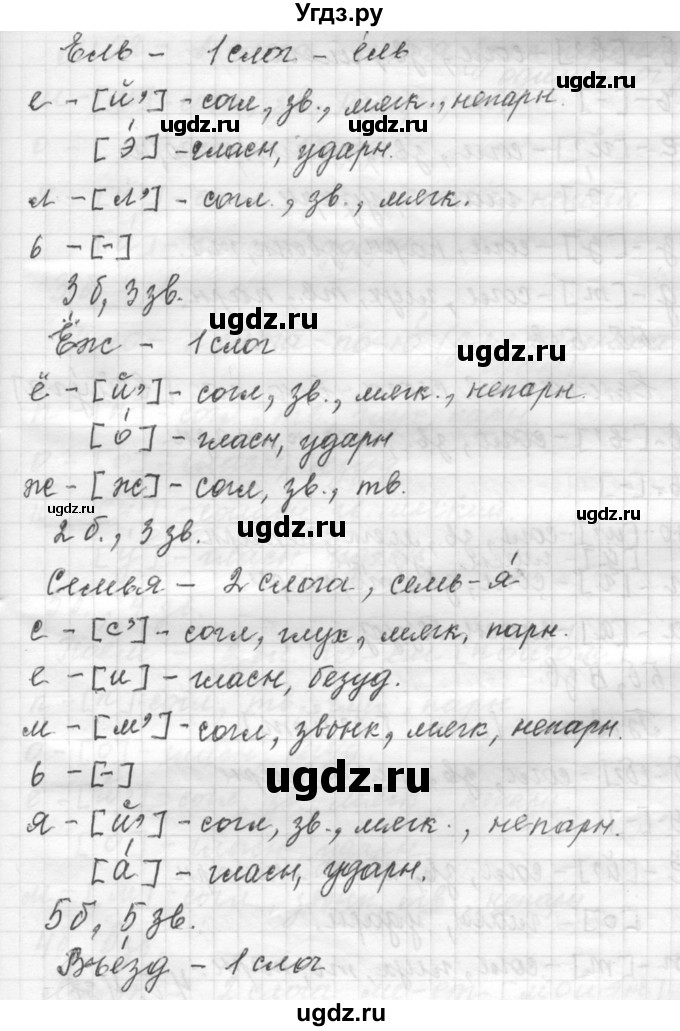 Угдз.ру
Ель - 1 слог - е́ль
е - [й'] - согл, зв., мягк., непарн.
ugdz.ru ugdz.ru
[э́] - гласн, ударн.
л - [л'] - согл., зв., мягк.
ь - [-]
3 б, 3 зв.
ugdz.ru
Ёж - 1 слог
ugdz.ru
ё - [й'] - согл, зв., мягк., непарн.
[о́] - гласн, ударн
ж - [ж] - согл, зв., тв.
ugdz.ru ugdz.ru ugdz.ru
2 б., 3 зв.
Семья - 2 слога, семь-я́
с - [с'] - согл, глух, мягк, парн.
е - [и] - гласн, безуд.
м - [м'] - согл, звонк, мягк, непарн.
ь - [-]
ugdz.ru
я - [й'] - согл, зв., мягк., непарн.
[а́] - гласн, ударн.
5 б, 5 зв.
Въе́зд - 1 слог
ugdz.ru ugdz.ru